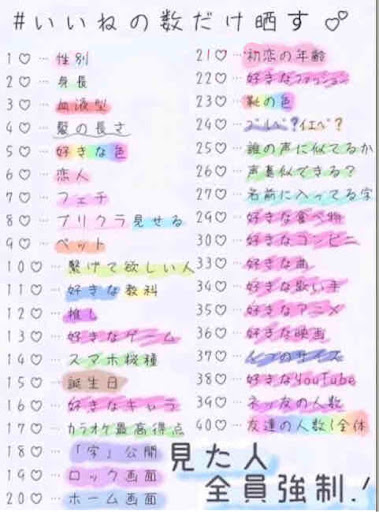 #いいねの数だけ晒す♂
1♡…性別
2♡…身長
3♡…血液型
4♡…髪の長さ
5♡…好きな色
6♡…恋人
7♡…フェチ
8♡…プリクラ見せる
9♡…ペット
10♡…繋げて欲しい人
11♡…好きな教科
12♡…推し
13♡…好きなゲーム
14♡…スマホ機種
15♡…誕生日
16♡…好きなキャラ
17♡…カラオケ最高得点
18♡…「字」公開
19♡…ロック画面
20♡…ホーム画面
21♡…初恋の年齢
22♡…好きなファッション
23♡…靴の色
24♡…ブルベ?イエベ?
25♡…誰の声に似てるか
26♡…声真似できる?
27♡…名前に入ってる字
29♡…好きな食べ物
30♡…好きなコンビニ
33♡…好きな曲
34♡…好きな歌い手
35♡…好きなアニメ
36♡…好きな映画
37♡…のサイズ
38♡…好きなYouTube
39♡…ネッ友の人数
40♡…友達の人数(全体
見た人
全員強制.!